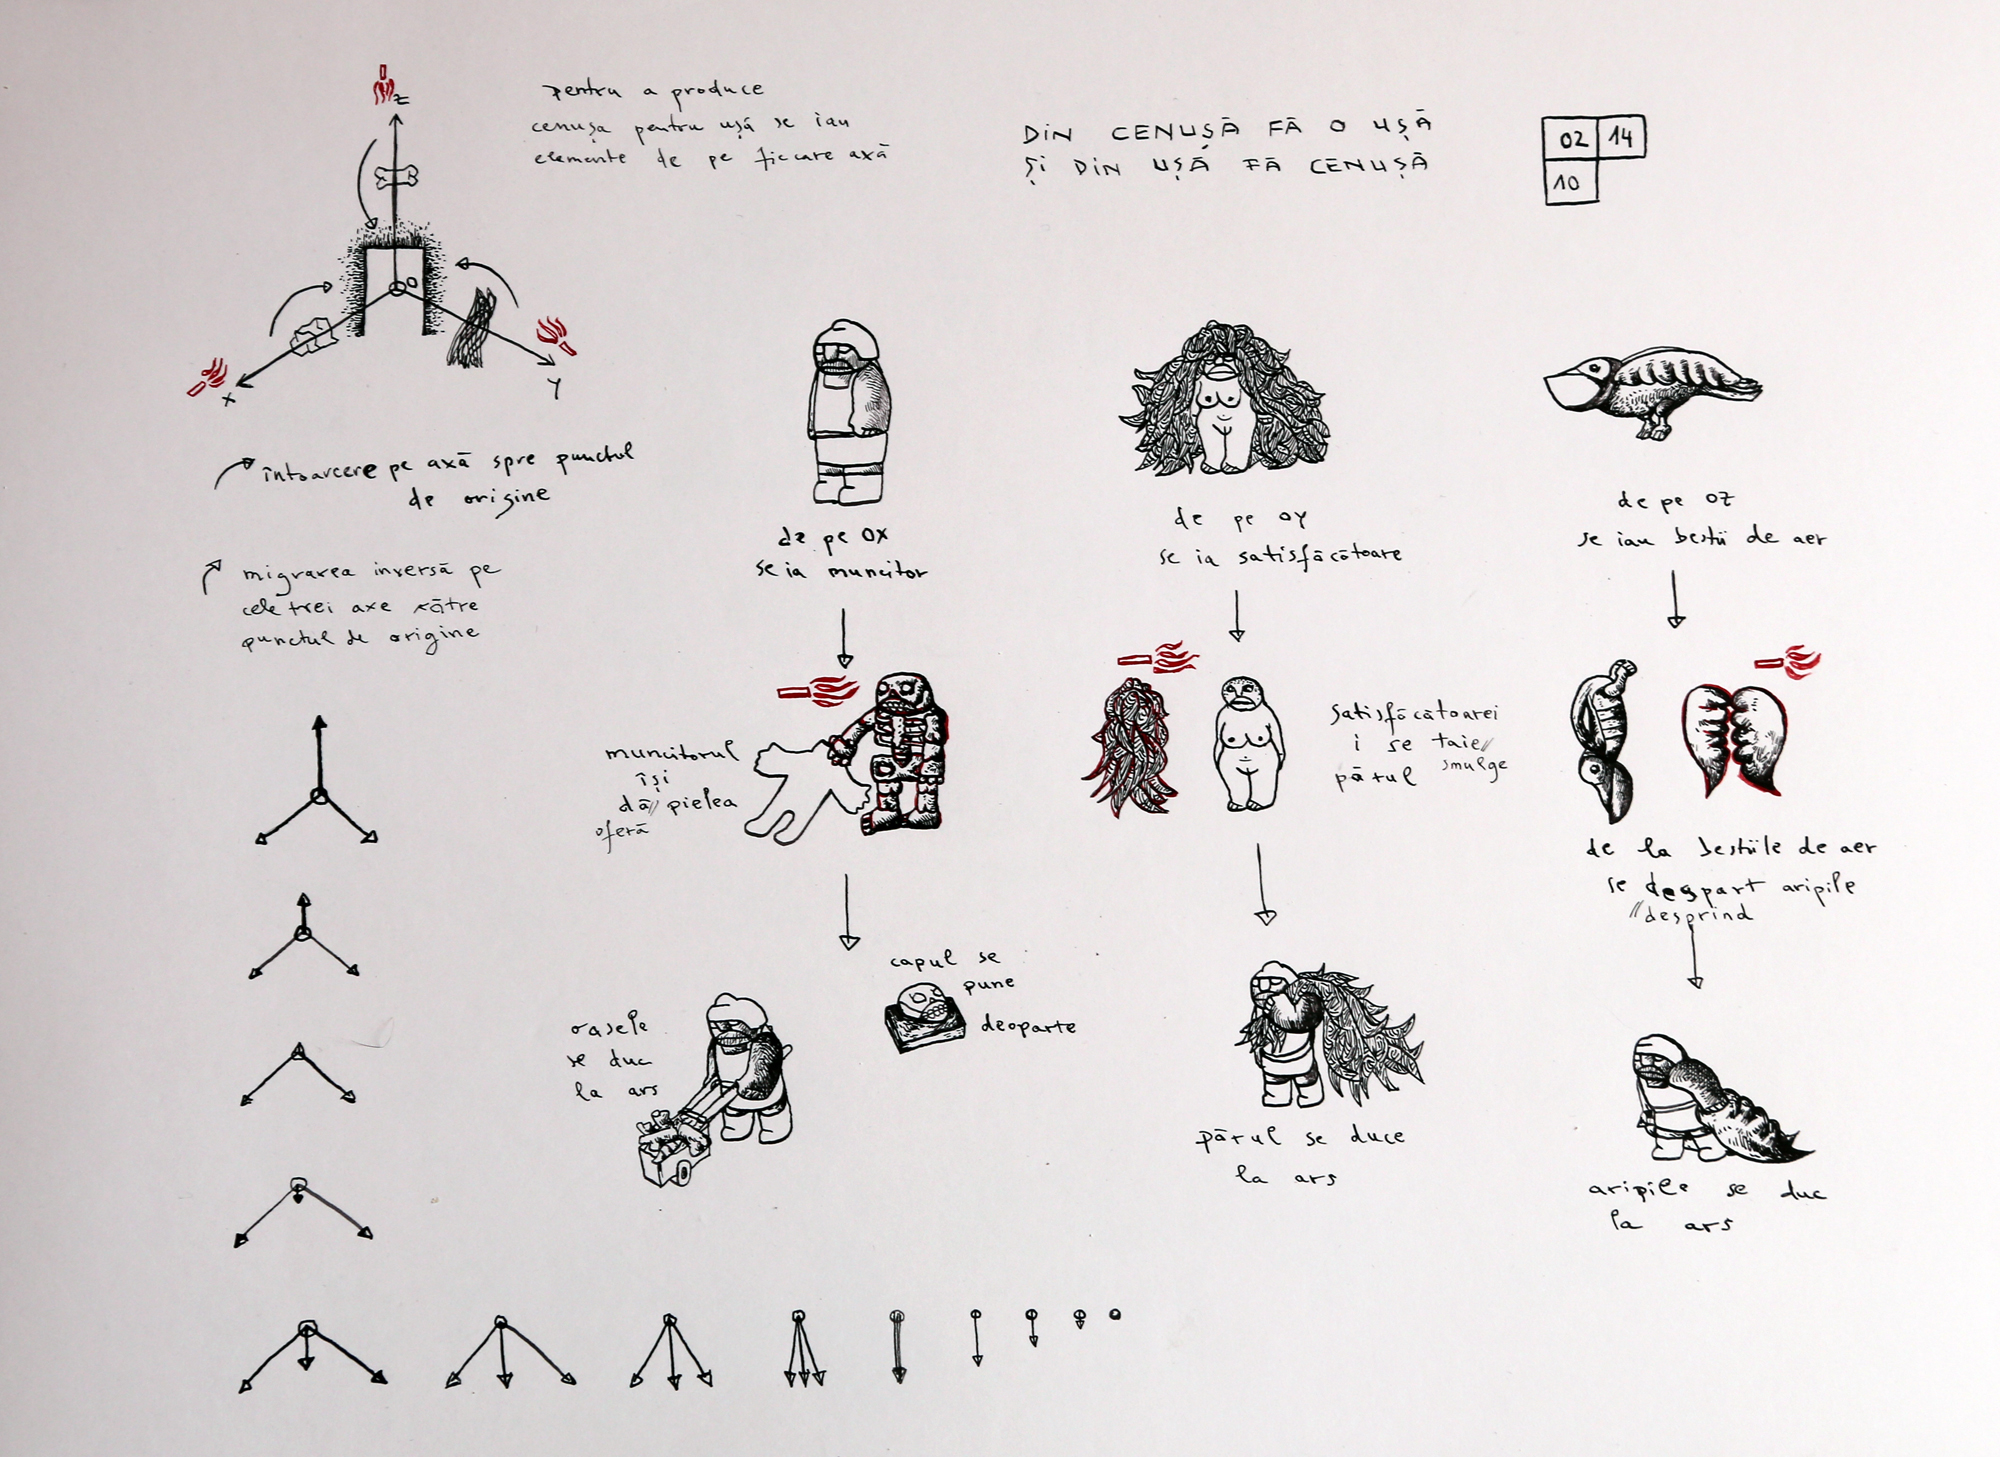 z
pentru a produce
cenușa pentru ușă se iau
elemente de pe fiecare axă
DIN CENUȘĂ FĂ O UȘĂ
ȘI DIN UȘĂ FĂ CENUȘĂ
02 14
10
O
X
Y
întoarcere pe axă spre punctul
de origine
migrarea inversă pe
cele trei axe către
punctul de origine
de pe OX
se ia muncitor
de pe OY
se ia satisfăcătoare
de pe OZ
se iau bestii de aer
muncitorul
își
dă// pielea
oferă
satisfăcătoarei
i se taie//
părul smulge
de la bestiile de aer
se despart aripile
//desprind
capul se
pune
deoparte
oasele
se duc
la ars
părul se duce
la ars
aripile se duc
la ars